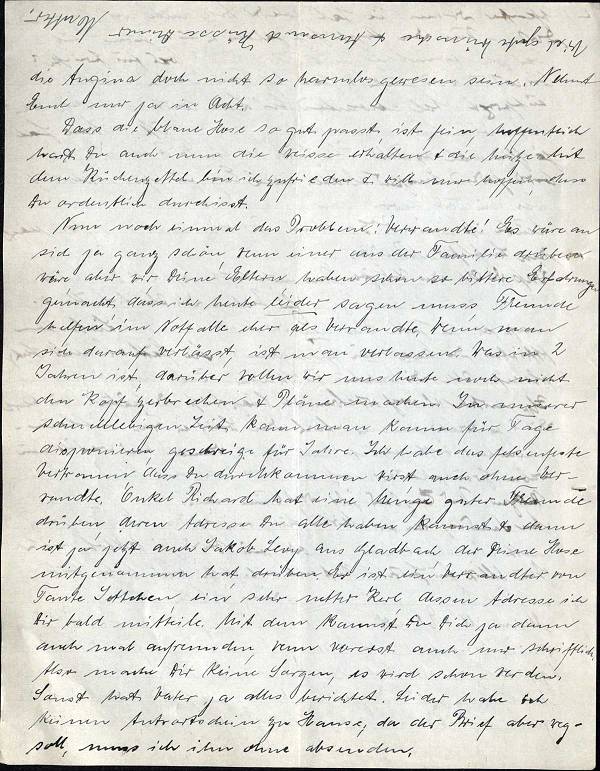 die Angina doch nicht so harmlos gewesen sein. Nehmt
Euch nur ja in Acht.
Dass die blaue Hose so gut passt ist fein hoffentlich
hast Du auch nun die weisse erhalten & die Mütze. Mit
dem Küchenzettel bin ich zufrieden & will nur hoffen dass
Du ordentlich durchisst.
Nun noch einmal das Problem: Verwandte! Es wäre an
sich ja ganz schön wenn einer aus der Familie drüben
wäre aber wir Deine Eltern haben schon so bittere Erfahrungen
gemacht dass ich heute leider sagen muss Freunde
helfen im Notfalle eher als Verwandte, wenn man
sich darauf verlässt, ist man verlassen. Was in 2
Jahren ist, darüber wollen wir uns heute noch nicht
den Kopf zerbrechen & Pläne machen. In unserer
schnellebigen Zeit kann man kaum für Tage
disponieren geschweige für Jahre. Ich habe das felsenfeste
Vertrauen dass Du durchkommen wirst auch ohne Ver-
wandte. Onkel Richard hat eine Menge guter Freunde
drüben deren Adresse Du alle haben kannst & dann
ist ja jetzt auch Jakob Levy aus Gladbach der Deine Hose
mitgenommen hat drüben. Er ist ein Verwandter von
Tante Jettchen ein sehr netter Kerl dessen Adresse ich
Dir bald mitteile. Mit dem kannst Du Dich ja dann
auch mal anfreunden wenn vorerst auch nur schriftlich.
Also mache Dir keine Sorgen, es wird schon werden.
Sonst hat Vater ja alles berichtet. Leider habe ich
keinen Antwortschein zu Hause, da der Brief aber weg-
soll, muss ich ihn ohne absenden.
Viel gute Wünsche & Küsse
Mutter.